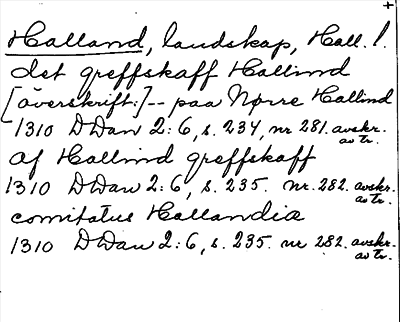 +
Halland, landskap, Hall. l.
det greffskaff Hallind
[överskrift:]-- paa Nørre Hallind
1310 DDan 2:6, s. 234, nr 281. avskr. av tr.
af Hallind greffskaff
1310 DDan 2:6, s. 235. nr. 282. avskr. av tr.
comitatus Hallandia
1310 DDan 2:6, s. 235. nr 282. avskr. av tr.